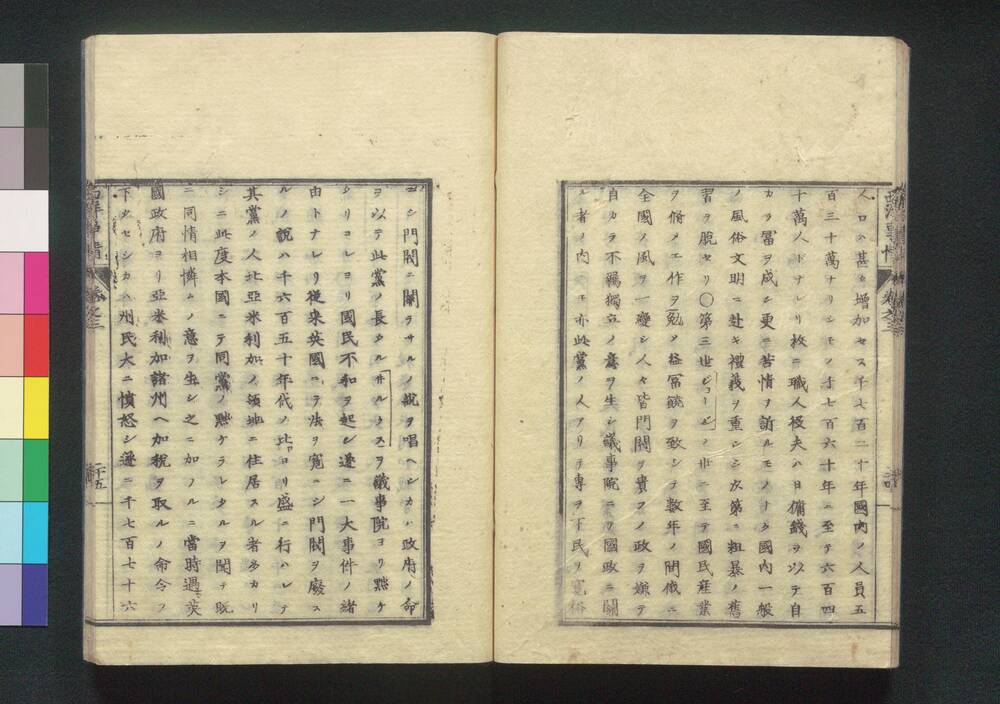 人口ハ甚タ增加セス千七百二十年國內ノ人員五
百三十萬ナリシモノ千七百六十年ニ至テ六百四
十萬人トナレリ故ニ職人役夫ハ日傭錢ヲ以テ自
カラ冨ヲ成シ更ニ苦情ヲ訴ルモノナク國內一般
ノ風俗文明ニ赴キ禮義ヲ重シシ次第ニ粗暴ノ舊
習ヲ脫セリ○第三世ジョージノ世ニ至テ國民産業
ヲ脩メ工作ヲ勉メ益冨饒ヲ致シテ數年ノ間俄ニ
全國ノ風ヲ一變シ人々皆門閥ヲ貴フノ政ヲ嫌テ
自カラ不羈獨立ノ意ヲ生シ議事院ニテ國政ニ關
ル者ノ內ニモ亦此黨ノ人アリテ專ラ下民ヲ寬裕
ニシ門閥ニ關ラサルノ說ヲ唱ヘシカハ政府ノ命
ヲ以テ此黨ノ長タルヰルクスヲ議事院ヨリ黜ケ
タリコレヨリ國民不和ヲ起シ遂ニ一大事件ノ緒
由トナレリ從来英國ニテ法ヲ寬ニシ門閥ヲ廢ス
ルノ說ハ千六百五十年代ノ比ヨリ盛ニ行ハレテ
其黨ノ人北亞米利加ノ領地ニ住居スル者多カリ
シニ此度本國ニテ同黨ノ黜ケラレタルヲ聞テ既
ニ同情相憐ムノ意ヲ生シ之ニ加フルニ當時遇英
國政府ヨリ亞米利加諸州ヘ加稅ヲ取ルノ命令ヲ
下タセシカハ州民大ニ憤怒シ遂ニ千七百七十六
西洋事情
卷之三
二十五